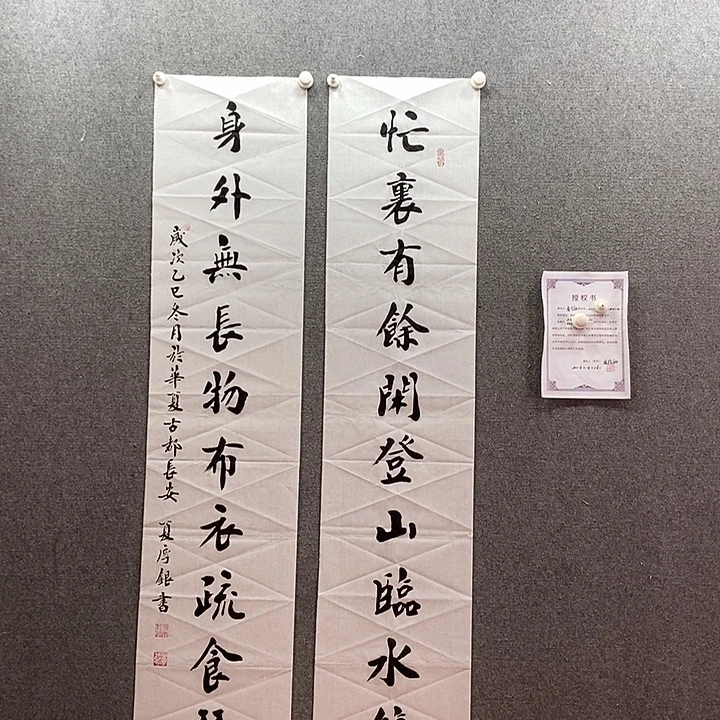 忙裏有餘閑登山臨水
身外無長物布衣疏食
歲次乙巳冬月於華夏古都長安 夏序銀書
授权书